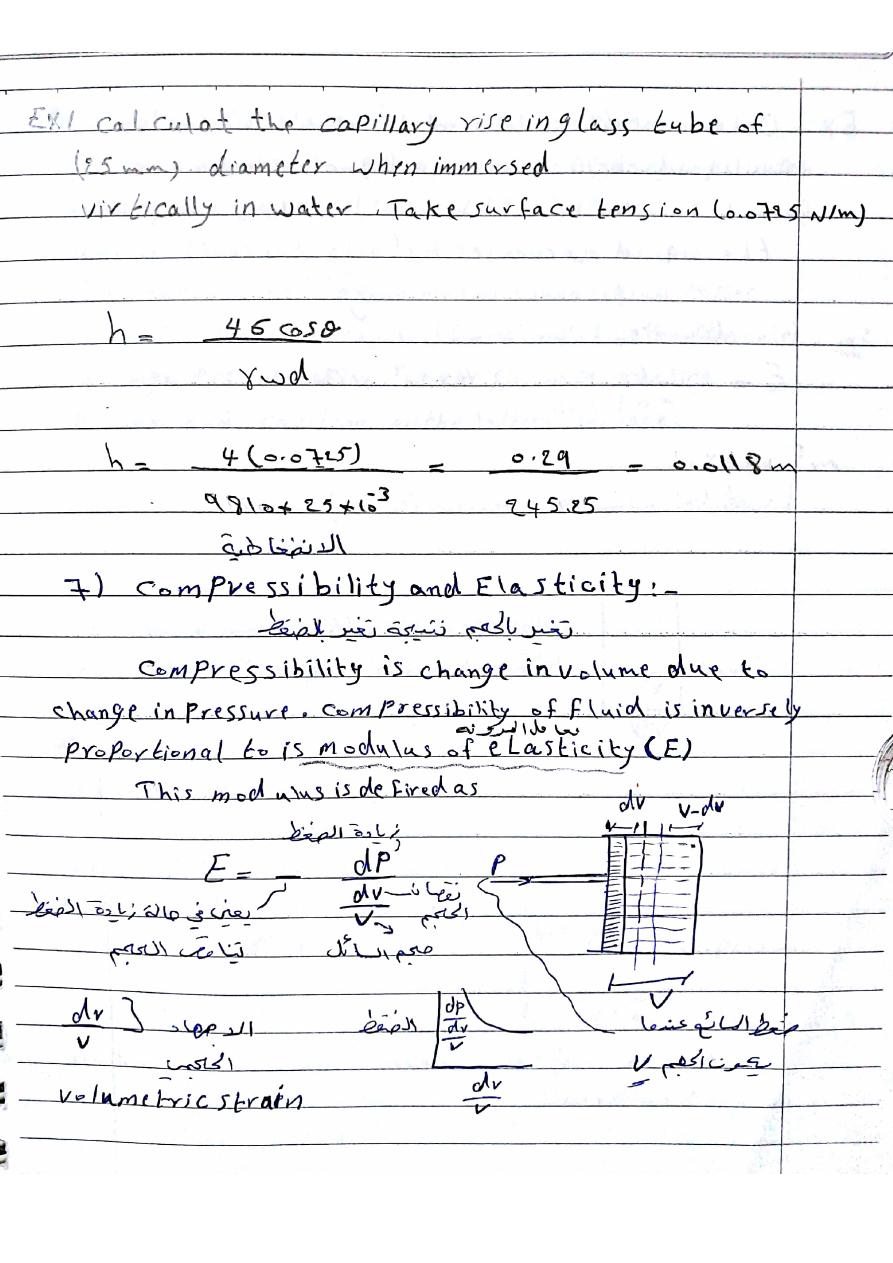 EX1 calculat the capillary rise in glass tube of
(25mm) diameter when immersed
virtically in water. Take surface tension (0.0725 N/m)
h = 4 σ cosθ / γwd
h = 4(0.0725) / 9810 * 25 * 10^-3 = 0.29 / 245.25 = 0.0118 m
الانضغاطية
7) Compressibility and Elasticity :-
تغير بالحجم نتيجة تغير بالضغط
Compressibility is change in volume due to
change in pressure. compressibility of fluid is inversely
معامل المرونه
proportional to is modulus of elasticity (E)
This modulus is defired as
dv v-dv
زيادة الضغط
E = - dP / dv/v
P
نقصان الحجم
يعني في حالة زيادة الضغط
يتناقص الحجم
حجم السائل
V
dv/v } الاجهاد
الحجمي
volumetric strain
الضغط
dp / dv/v
dv/v
ضغط المائع عندما
يكون الحجم V